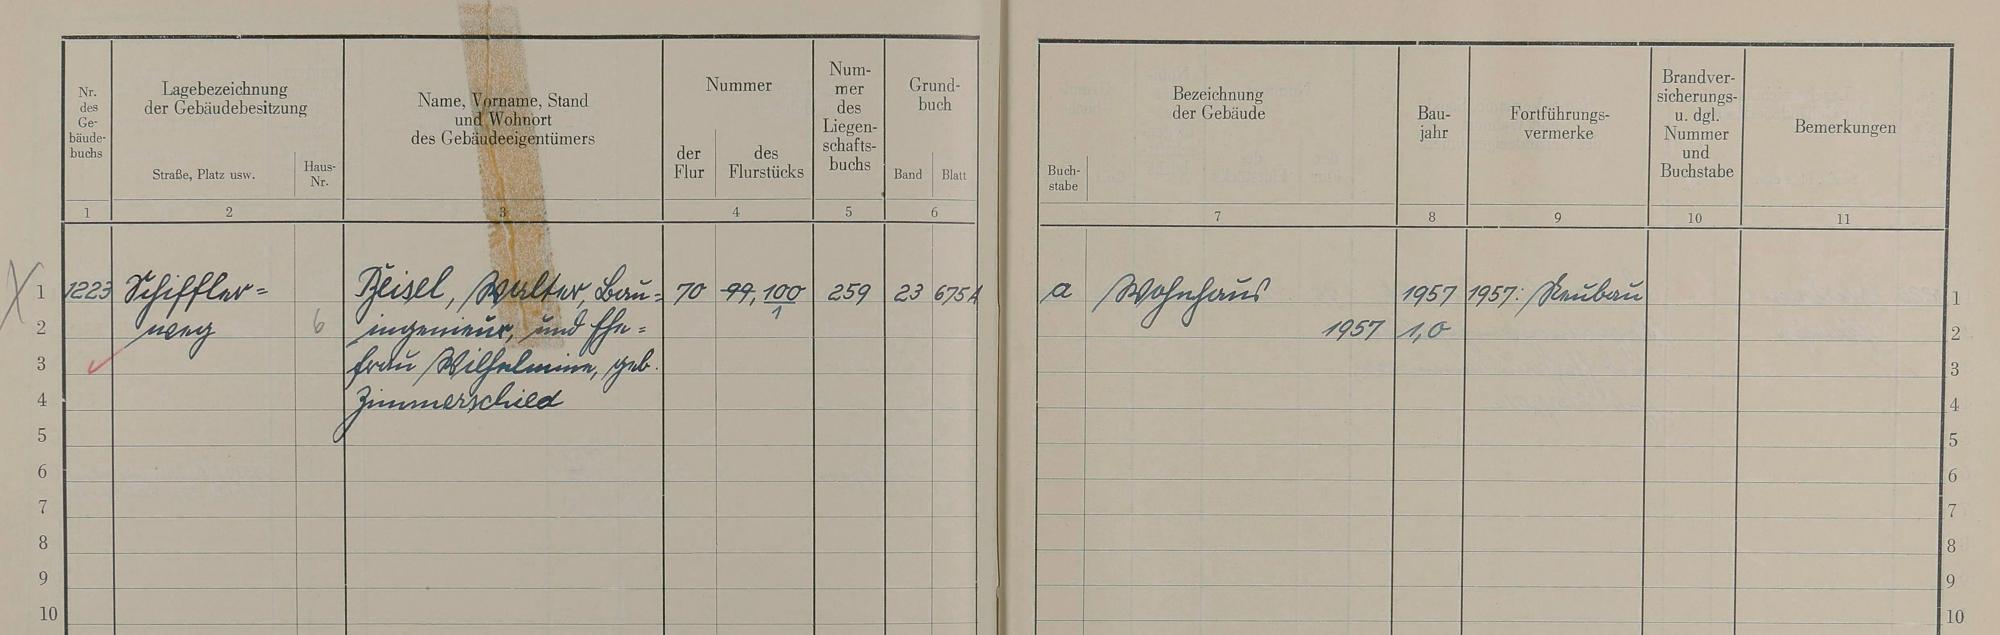 Nr. des Ge- bäude- buchs
Lagebezeichnung
der Gebäudebesitzung
Straße, Platz usw.
Haus- Nr.
Name, Vorname, Stand
und Wohnort
des Gebäudeeigentümers
Nummer
der Flur
des Flurstücks
Num- mer des Liegen- schafts- buchs
Grund- buch
Band
Blatt
1 2 3 4 5 6
1 1223 Schiffler= Beisel, Walter, Bau= 70 99, 100/1 259 23 675A
2 weg 6 ingenieur, und Ehe=
3 frau Wilhelmine, geb.
4 Zimmerschied
5
6
7
8
9
10
Bezeichnung
der Gebäude
Buch- stabe
Bau- jahr
Fortführungs- vermerke
Brandver- sicherungs- u. dgl. Nummer und Buchstabe
Bemerkungen
7 8 9 10 11
a Wohnhaus 1957 1957: Neubau 1
1957 1,0 2
3
4
5
6
7
8
9
10